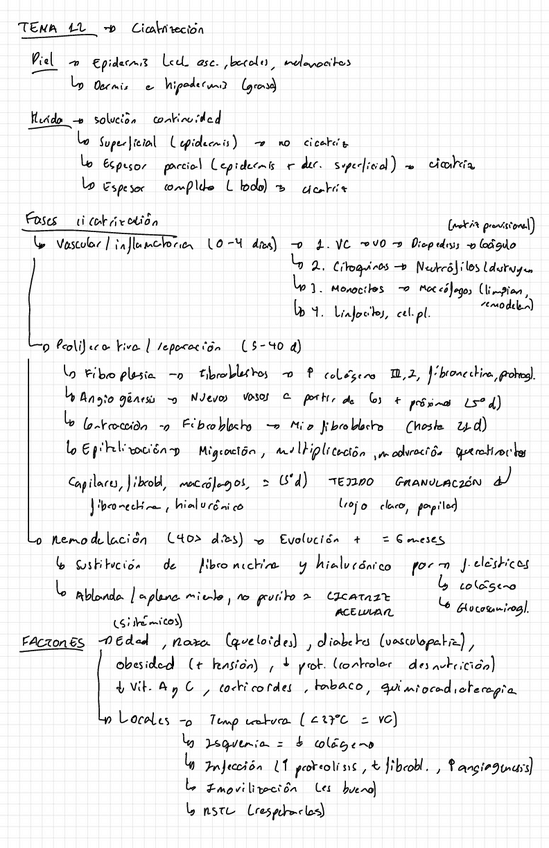 TEMA 12 → Cicatrización
Piel → Epidermis (cel. esc., basales, melanocitos
↳ Dermis e hipodermis (grasa)
Herida → solución continuidad
↳ Superficial (epidermis) → no cicatriz
↳ Espesor parcial (epidermis + der. superficial) → cicatriz
↳ Espesor completo (todo) → cicatriz
Fases cicatrización
(matriz provisional)
↳ Vascular/inflamatoria (0-4 días) → 1. VC → VD → Diapedesis → Coágulo
↳ 2. Citoquinas → Neutrófilos (destruyen
↳ 3. Monocitos → Macrófagos (limpian,
remodelan)
↳ 4. Linfocitos, cel. pl.
↳ Proliferativa/reparación (5-40 d)
↳ Fibroplasia → Fibroblastos → ↑ colágeno III, I, fibronectina, proteogl.
↳ Angiogénesis → Nuevos vasos a partir de los + próximos (5º d)
↳ Contracción → Fibroblasto → Miofibroblasto (hasta 21 d)
↳ Epitelización → Migración, multiplicación, maduración queratinocitos
Capilares, fibrobl, macrófagos, = (5º d) TEJIDO GRANULACIÓN
fibronectina, hialurónico (rojo claro, papilas)
↳ Remodelación (40> días) → Evolución + = 6 meses
↳ Sustitución de fibronectina y hialurónico por → f. elásticas
↳ colágeno
↳ Glucosaminogl.
↳ Ablanda/aplanamiento, no prurito = CICATRIZ
ACELULAR
(sistémicos)
FACTORES → Edad, raza (queloides), diabetes (vasculopatía),
obesidad (+ tensión), ↓ prot. (controlar desnutrición)
↓ Vit. A y C, corticoides, tabaco, quimioradioterapia
↳ Locales → Temperatura (<37ºC = VC)
↳ Isquemia = ↓ colágeno
↳ Infección (↑ proteolisis, ↓ fibrobl., ↑ angiogénesis)
↳ Inmovilización (es bueno)
↳ RSTL (respetarlas)